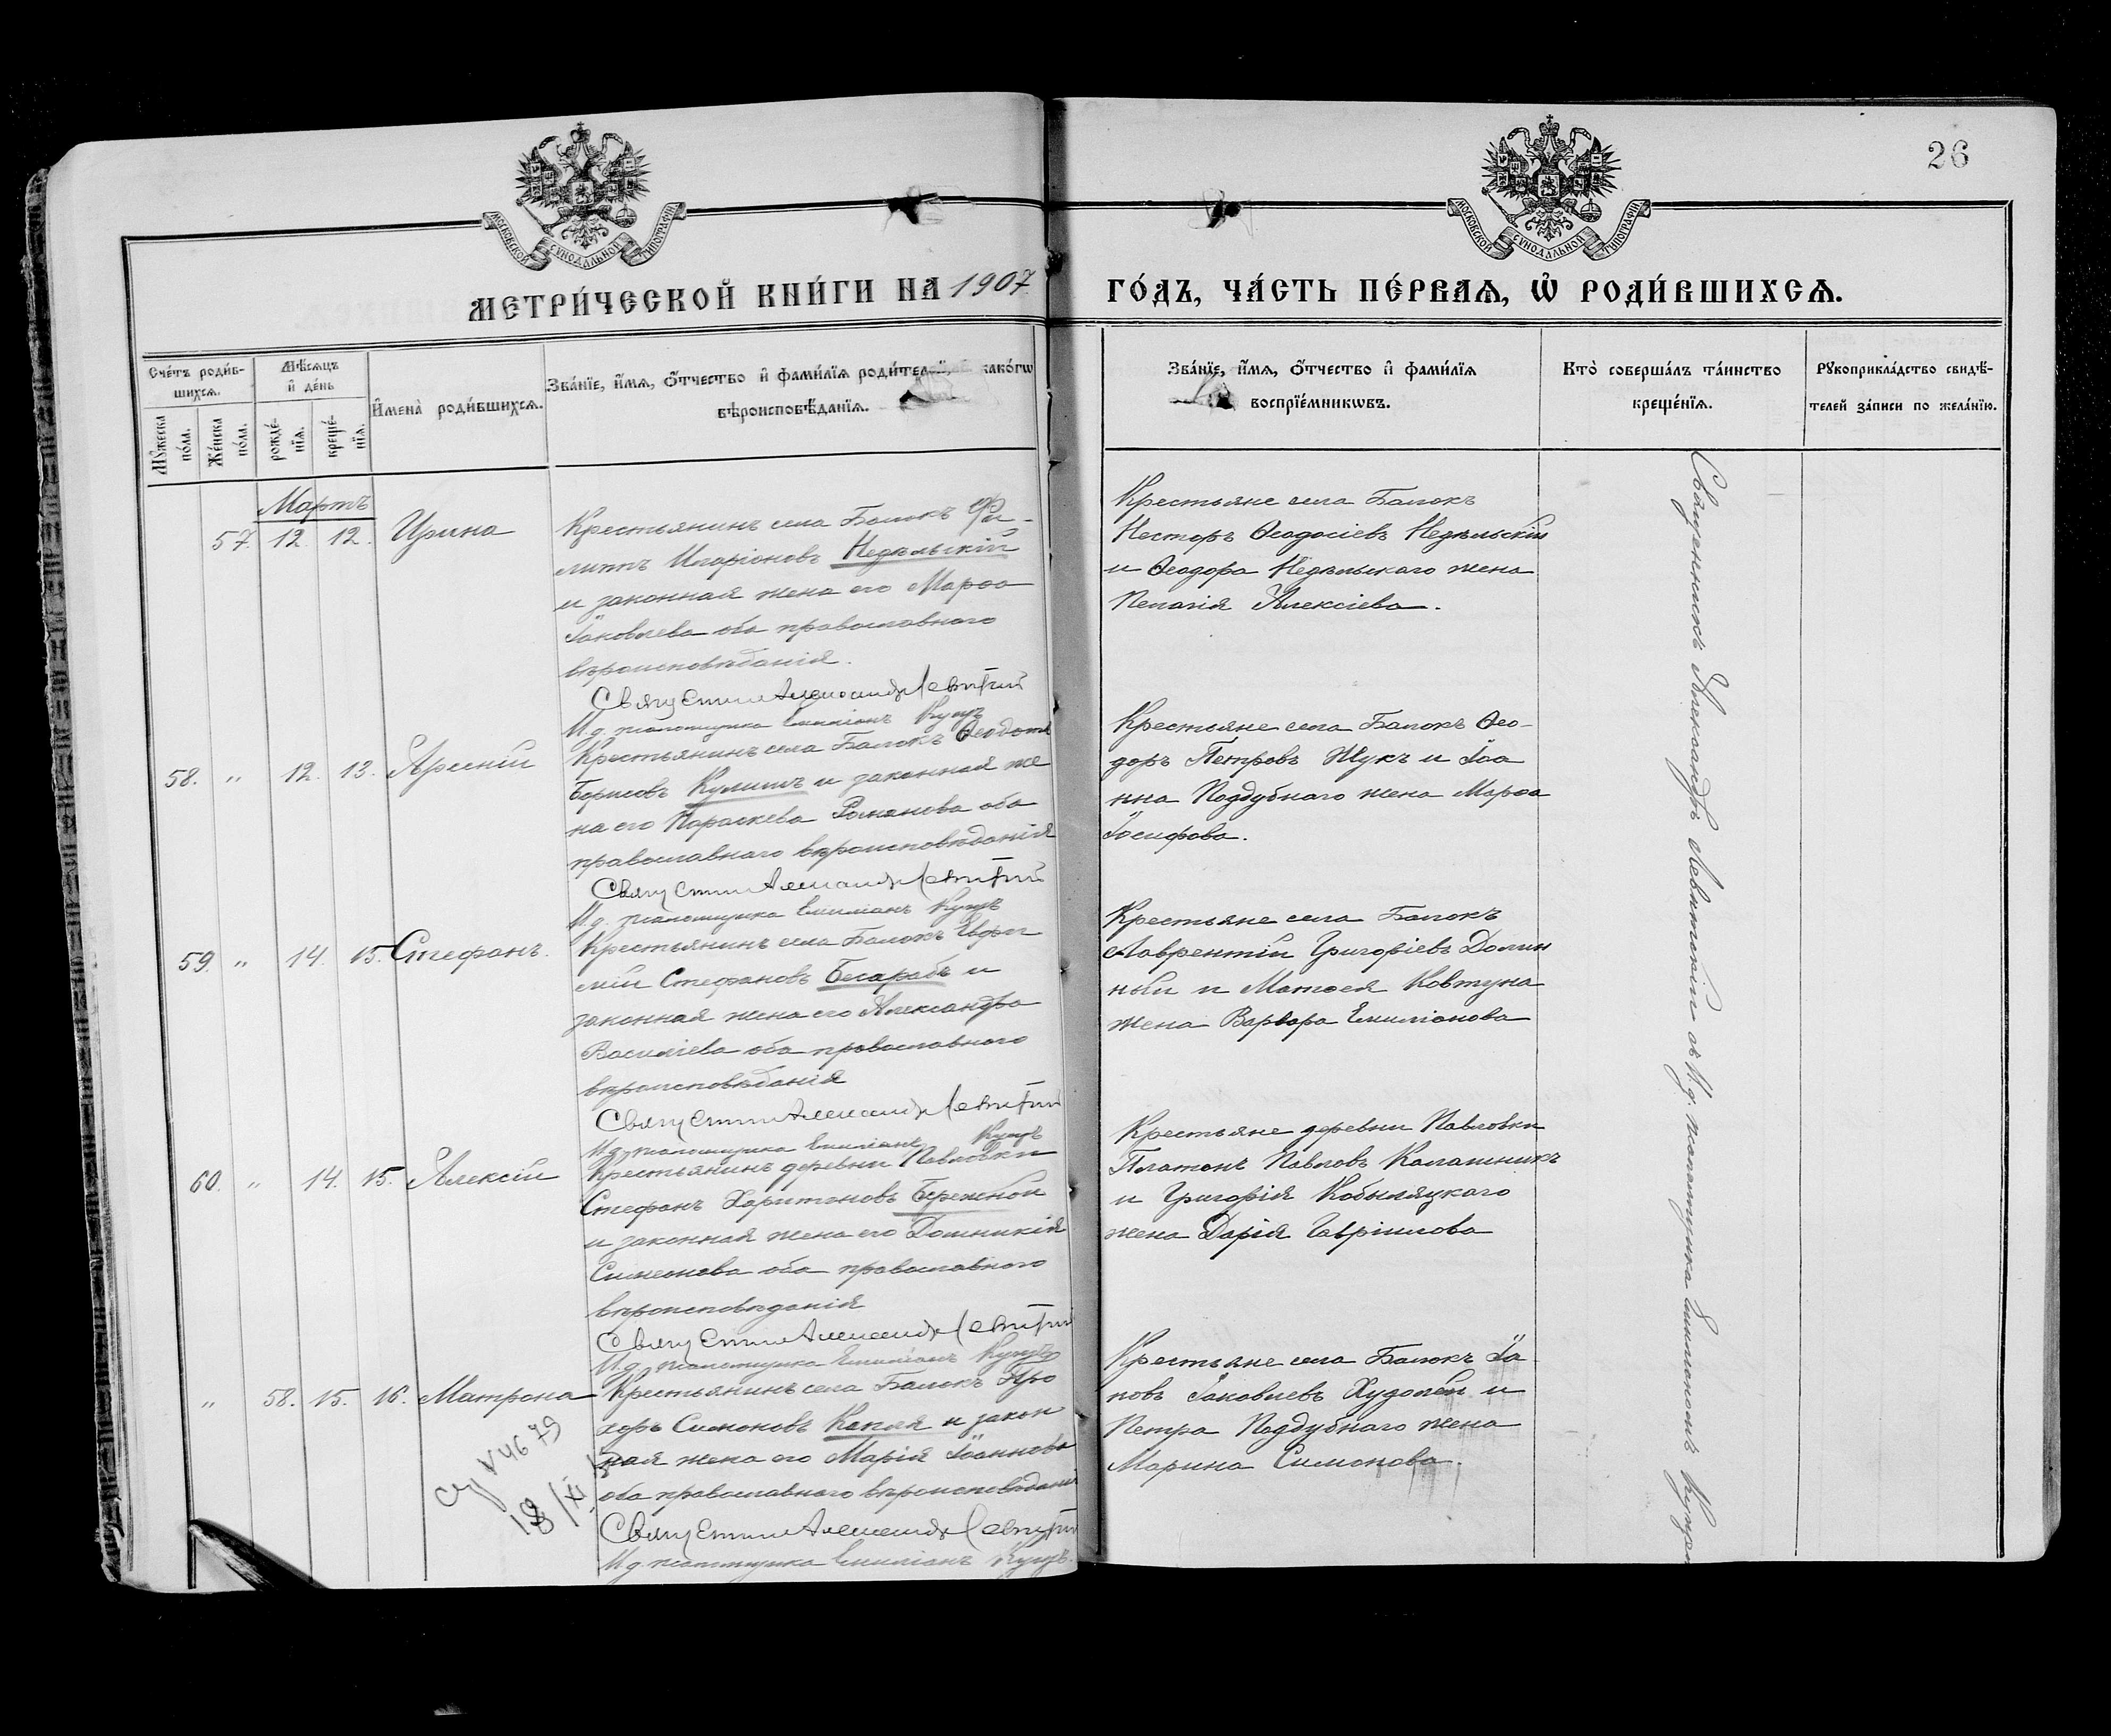 26
МОСКОВСКОЙ СѴНОДАЛЬНОЙ ТИПОГРАФІИ
МОСКОВСКОЙ СѴНОДАЛЬНОЙ ТИПОГРАФІИ
МЕТРИ́ЧЕСКОЙ КНИ́ГИ НА 1907
ГО́ДЪ, ЧА́СТЬ ПЕ́РВАѦ, Ѡ҆ РОДИ́ВШИХСѦ.
Сче́тъ роди́в-
шихсѧ.
Мꙋжеска по́ла.
Же́нска по́ла.
Мѣ́сѧцъ
и҆ де́нь
рожде́-
нїѧ.
креще́-
нїѧ.
И҆мена̀ роди́вшихсѧ.
Зва́нїе, и҆́мѧ, ѻ҆́тчество и҆ фами́лїѧ роди́тел како́гѡ
вѣроисповѣ́данїѧ.
Зва́нїе, и҆́мѧ, ѻ҆́тчество и҆ фами́лїѧ
воспрїе́мникѡвъ.
Кто̀ соверша́лъ та́инство
креще́нїѧ.
Рꙋкоприкла́дство свидѣ́-
телей за́писи по жела́нїю.
Мартъ
57. 12. 12. Ирина
Крестьянинъ села Балокъ Фи-
липпъ Иларіоновъ Недѣльскій
и законная жена его Марѳа
Іаковлева оба православнаго
вѣроисповѣданія.
Священникъ Александръ Левитскій
И.д. псаломщика Емиліанъ Куцъ
Крестьяне села Балокъ
Несторъ Ѳеодосіевъ Недѣльскій
и Ѳеодора Недѣльскаго жена
Пелагія Алексіева.
58. " 12. 13. Арсеній
Крестьянинъ села Балокъ Ѳеодотъ
Борисовъ Кулишъ и законная же
на его Параскева Романова оба
православнаго вѣроисповѣданія
Священникъ Александръ Левитскій
И.д. псаломщика Емиліанъ Куцъ
Крестьяне села Балокъ Ѳео-
доръ Петровъ Жукъ и Іоа
нна Поддубнаго жена Марѳа
Іосифова.
59. " 14. 15. Стефанъ.
Крестьянинъ села Балокъ Евфи
мій Стефановъ Бесарабъ и
законная жена его Александра
Василіева оба православнаго
вѣроисповѣданія
Священникъ Александръ Левитскій
И.д. псаломщика Емиліанъ Куцъ
Крестьяне села Балокъ
Лаврентій Григоріевъ Долин
ный и Матѳея Ковтуна
жена Варвара Емиліонова
60. " 14. 15. Алексій
Крестьянинъ деревни Павловки
Стефанъ Харитоновъ Бережной
и законная жена его Домникія
Симеонова оба православнаго
вѣроисповѣданія
Священникъ Александръ Левитскій
И.д. псаломщика Емиліанъ Куцъ
Крестьяне деревни Павловки
Платонъ Павловъ Калашникъ
и Григорія Кобыляцкаго
жена Дарія Гавріилова
" 58. 15. 16. Матрона
Крестьянинъ села Балокъ Про
хоръ Симоновъ Капля и закон
ная жена его Марія Іоаннова
оба православнаго вѣроисповѣданія
Священникъ Александръ Левитскій
И.д. псаломщика Емиліанъ Куцъ.
Крестьяне села Балокъ Іа
ковъ Іаковлевъ Худолѣй и
Петра Поддубнаго жена
Марина Симонова.
4679
18/XI
Священникъ Александръ Левитскій съ И.д. псаломщика Емиліаномъ